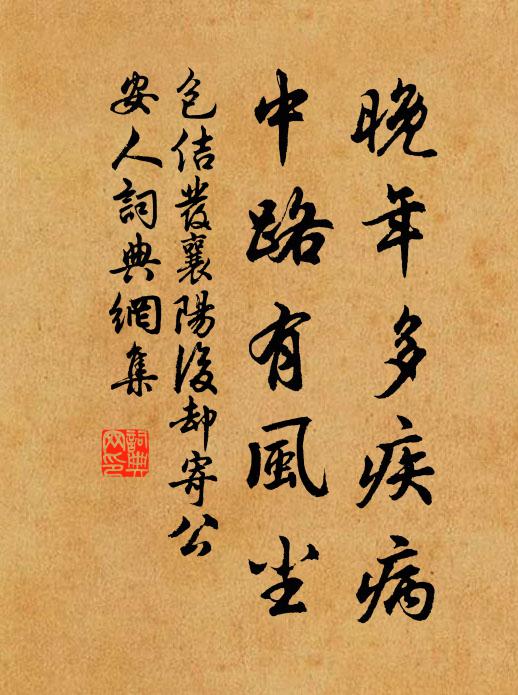 晚年多疾病
中路有風尘
包佶發襄陽後却寄公
安人詞典網集
詞典网印